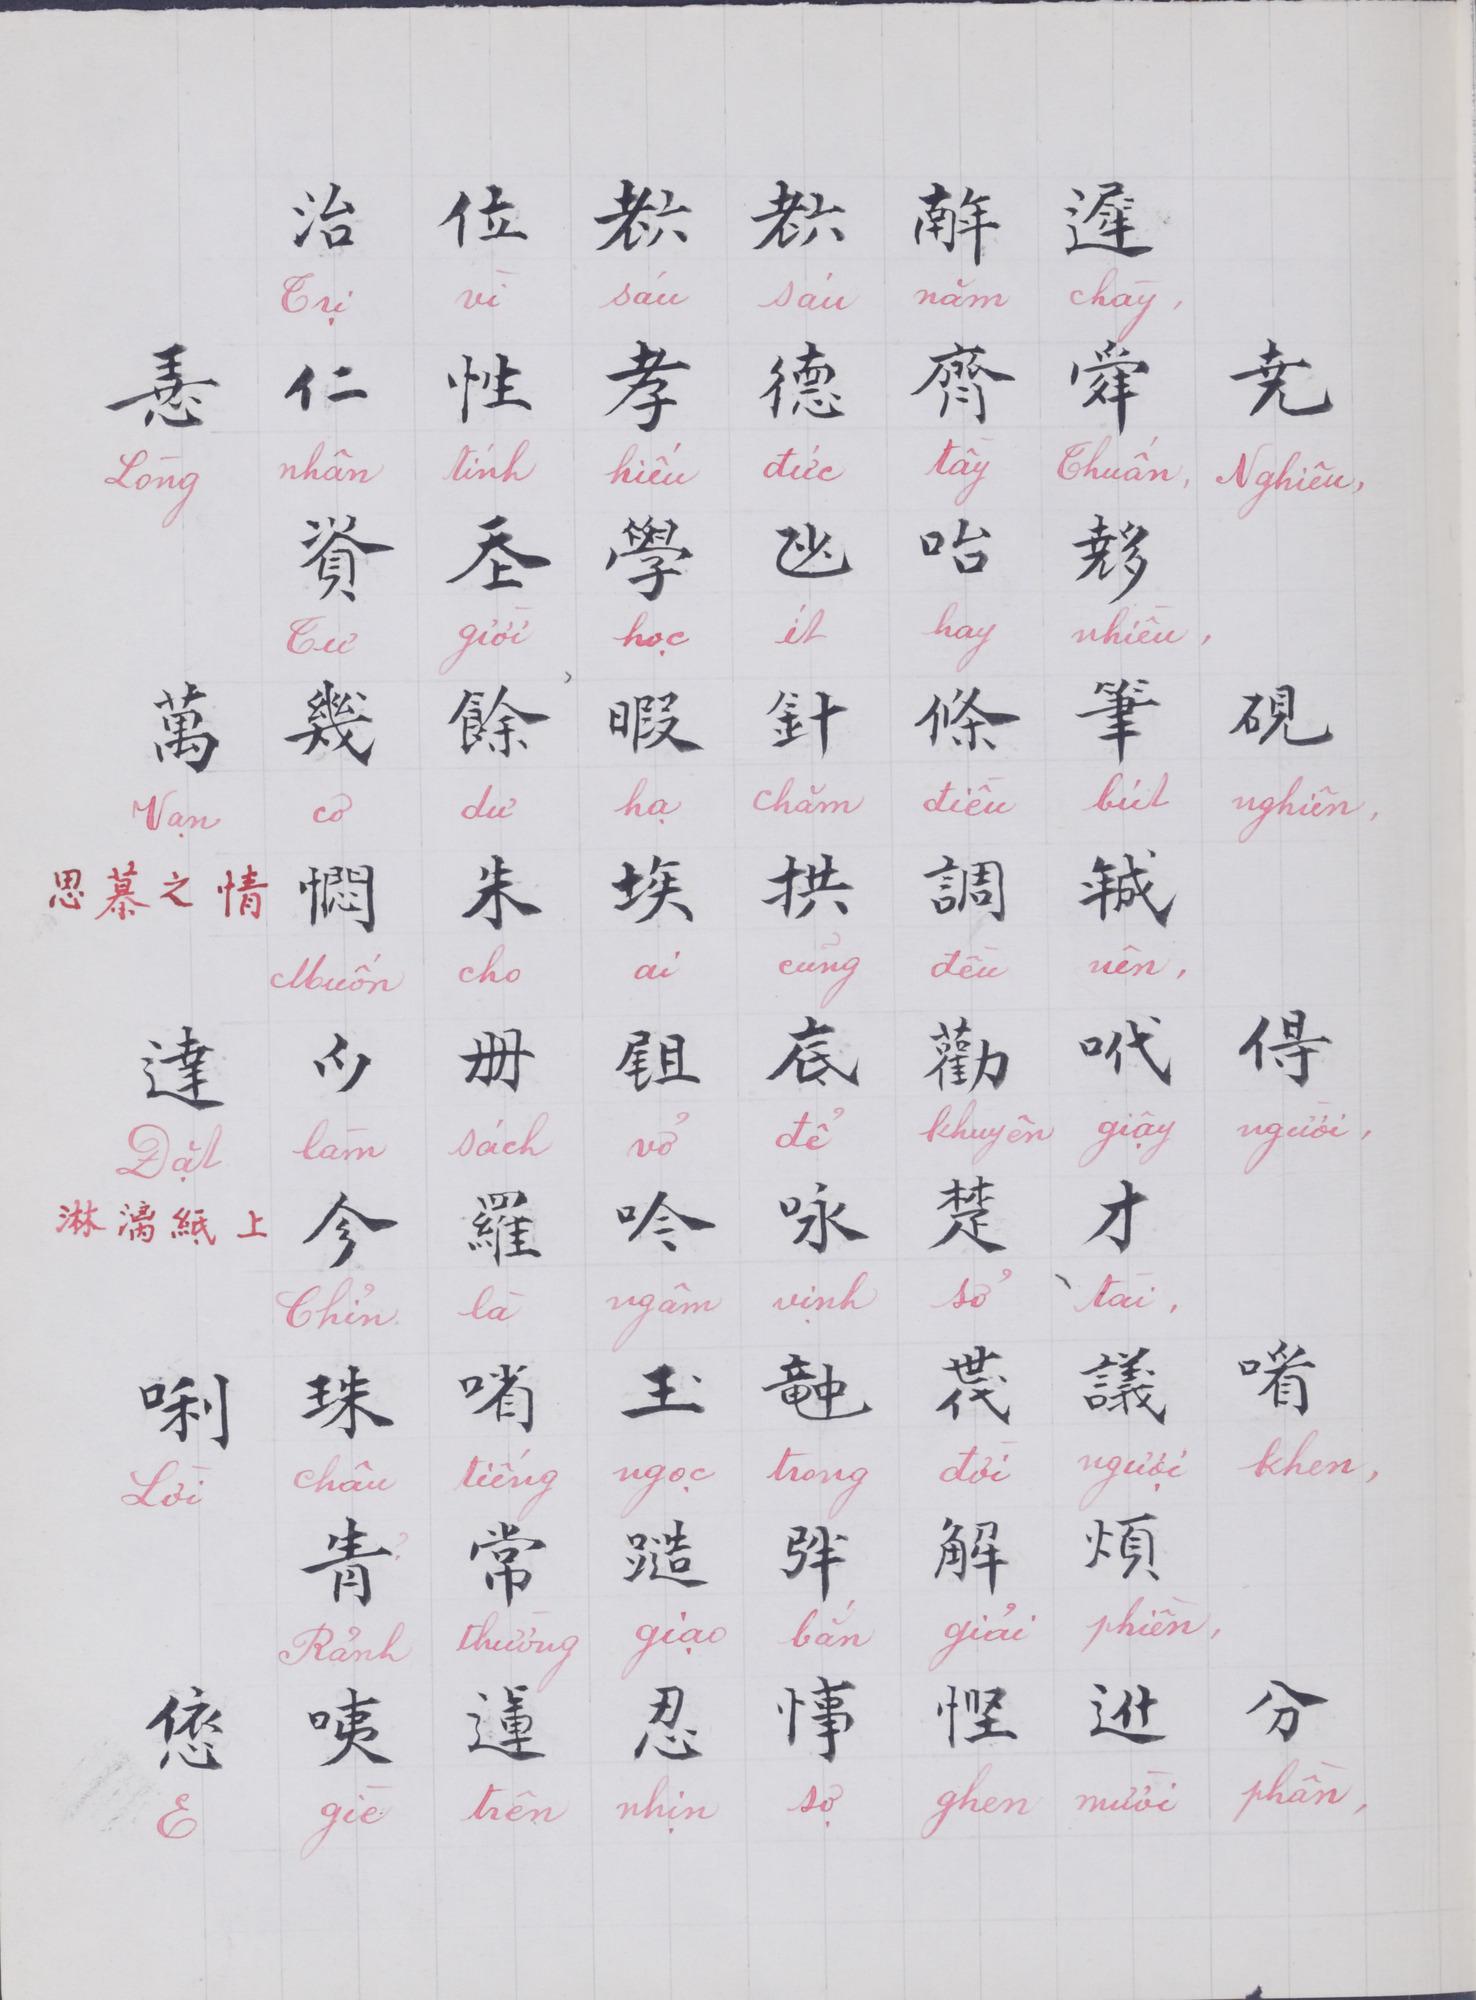 治 位 𦒹 𦒹 𢆥 遲
Trị vì sáu sáu năm chầy,
𢚸 仁 性 孝 德 齊 舜 尭
Lòng nhân tính hiếu đức tầy Thuấn, Nghiêu,
資 𡗶 學 𠃣 咍 𡗊
Tư giời học ít hay nhiều,
萬 幾 餘 暇 針 條 筆 硯
Vạn cơ dư hạ chăm điều bút nghiên,
思慕之情
憫 朱 埃 拱 調 𢧚
Muốn cho ai cũng đều nên,
達 𪜀 册 𡲈 底 勸 𠰺 㝵
Đặt làm sách vở để khuyên giậy người,
淋漓紙上
㐱 羅 吟 咏 楚 才
Chỉn là ngâm vịnh sở tài,
唎 珠 㗂 玉 𥪝 𠁀 議 㗃
Lời châu tiếng ngọc trong đời ngượi khen,
青 常 𨔾 𢏑 解 煩
Rảnh thường giạo bắn giải phiền,
偯 咦 運 忍 𢜝 慳 𨒒 分
E giè trên nhịn sợ ghen mười phần,